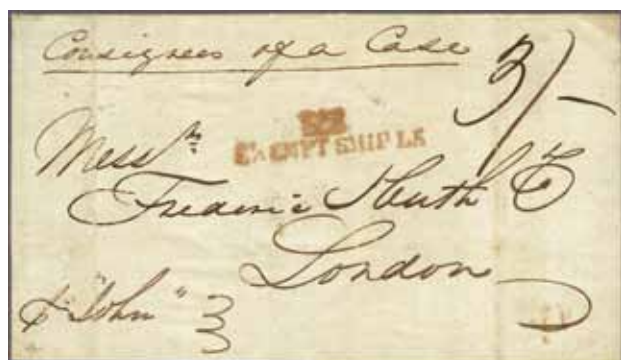 Consignees of a Case
3/-
EXEMPT SHIP LR
Messrs
Frederic Huth & Co
London
p "John"